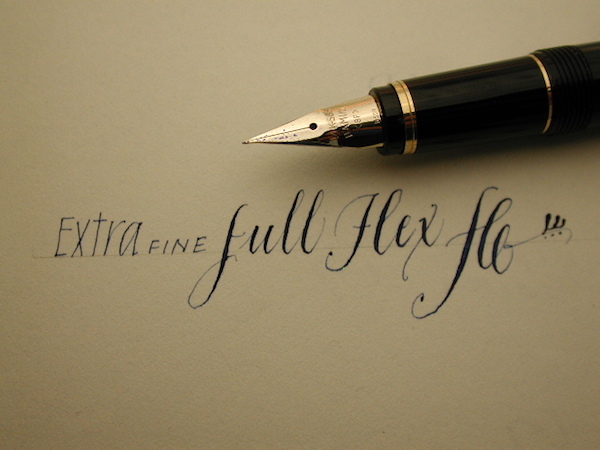 Extra FINE full Flex flo !!!